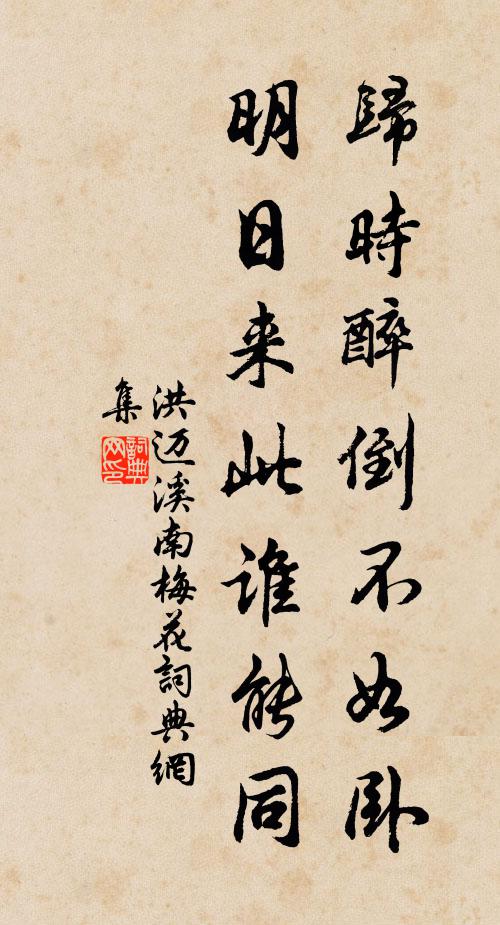 歸時醉倒不如卧
明日来此誰能同
洪迈溪南梅花詞典網
集
詞典网印